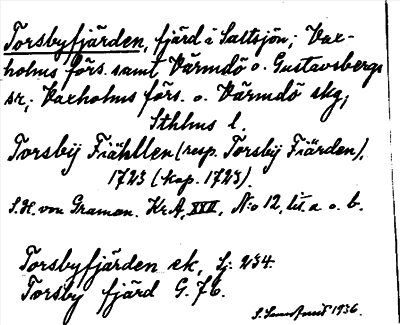 Torsbyfjärden, fjärd i Saltsjön; Vax-
holms förs. samt Värmdö o. Gustavsbergs
sr; Vaxholms förs. o. Värmdö skg,
Sthlms l.
Torsbÿ Fiähllen (resp. Torsbÿ Fiärden),
1723 (kop. 1723).
S. H. von Graman. Kr A, XXII, N:o 12, lit. a o. b.
Torsbyfjärden ek, Lj: 234.
Torsby fjärd G. 76.
1936.